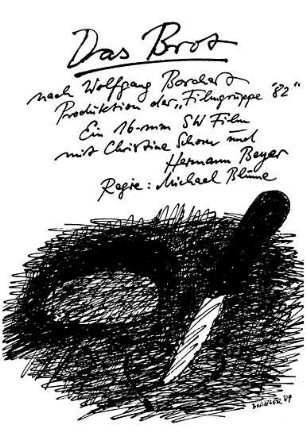 Das Brot
nach Wolfgang Borchert
Produktion der „Filmgruppe '82"
Ein 16-mm SW Film
mit Christine Schorn und
Hermann Beyer
Regie: Michael Blume